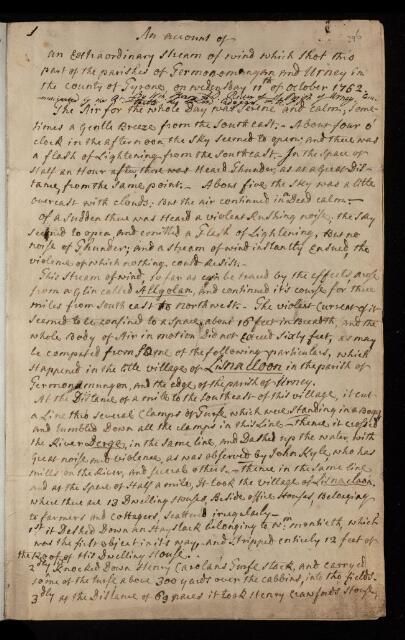 1
An account of
an Extraordinary stream of wind which shot thro
part of the parishes of Termonomungan and Urney in
the County of Tyrone, on wednesday 11th of October 1752
The Air for the whole Day was Serene and calm, some-
times a Gentle Breeze from the Southeast,- About four o'
clock in the afternoon, the Sky Seemed to open, and there was
a flash of Lightening, from the Southeast.- In the space of
Half an Hour after, there was Heard Thunder, as at a Great Dis-
tance, from the Same point.- About five, the Sky was a little
overcast with clouds, But the air continued in a Dead calm.-
Of a Sudden there was Heard a violent Rushing noise, the Sky
Seemed to open, and Emitted a Flash of Lightening, But no
noise of Thunder; and a stream of wind instantly Ensued, the
violence of which nothing could Resist.-
This Stream of wind, so far as can be traced by the Effects arose
from a Glin called Allgolan, and continued its course for three
miles from South east to northwest.- The violent Current of it
Seemed to be confined to a Space, about 16 feet in Breadth, and the
whole Body of Air in motion Did not Exceed Sixty feet, as may
be computed from Some of the following particulars, which
Happened in the little village of Lisnacloon in the parish of
Termonomungan, and the edge of the parish of Urney.
At the Distance of a mile to the Southeast of this village, it cut
a Line thro several Clamps of Turfe, which were standing in a Bogg
and tumbled Down all the clamps in this Line - thence, it crossed
the River Derge, in the same line, and Dashed up the water, with
Great noise and violence, as was observed by John Kyle, who has
mills on the River, and several others.- thence in the Same line
and at the Space of Half a mile, It took the village of Lisnacloon,
where there are 13 Dwelling Houses, Beside office Houses, Belonging
to farmers and cottagers, scattered irregularly.-
1st it Dashed Down an Hay stack belonging to Wm. monteith, which
was the first object in its way, and stripped entirely 12 feet of
the Roof of His Dwelling House.-
2dly it Knocked Down Henry Carolans Turfe stack, and carryed
some of the turfe above 300 yards over the cabbins, into the fields.
3dly at the Distance of 69 paces it took Henry Crawfords House,